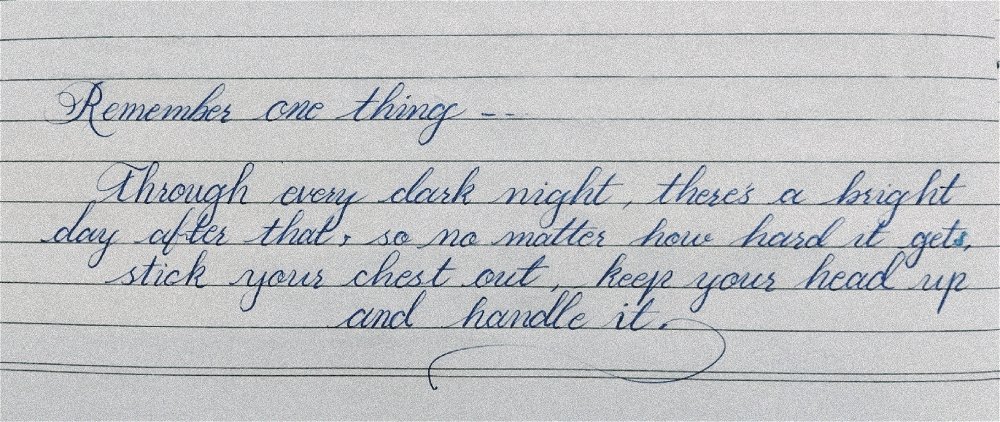 Remember one thing --
Through every dark night, there's a bright
day after that, so no matter how hard it gets,
stick your chest out, keep your head up
and handle it.